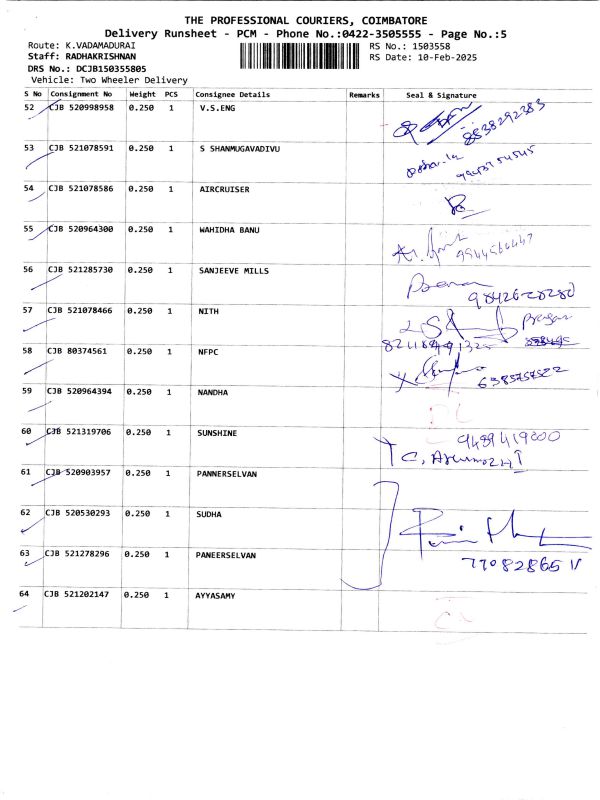 THE PROFESSIONAL COURIERS, COIMBATORE
Delivery Runsheet - PCM - Phone No.:0422-3505555 - Page No.:5
Route: K.VADAMADURAI RS No.: 1503558
Staff: RADHAKRISHNAN RS Date: 10-Feb-2025
DRS No.: DCJB150355805
Vehicle: Two Wheeler Delivery
S No Consignment No Weight PCS Consignee Details Remarks Seal & Signature
52 CJB 520998958 0.250 1 V.S.ENG 8838292383
53 CJB 521078591 0.250 1 S SHANMUGAVADIVU
54 CJB 521078586 0.250 1 AIRCRUISER
55 CJB 520964300 0.250 1 WAHIDHA BANU 9944566447
56 CJB 521285730 0.250 1 SANJEEVE MILLS
98426-20280
57 CJB 521078466 0.250 1 NITH
58 CJB 80374561 0.250 1 NFPC
6383757522
59 CJB 520964394 0.250 1 NANDHA
60 CJB 521319706 0.250 1 SUNSHINE 9489419200
C. ARUMOZHI
61 CJB 520903957 0.250 1 PANNERSELVAN
62 CJB 520530293 0.250 1 SUDHA
63 CJB 521278296 0.250 1 PANEERSELVAN 7708286511
64 CJB 521202147 0.250 1 AYYASAMY